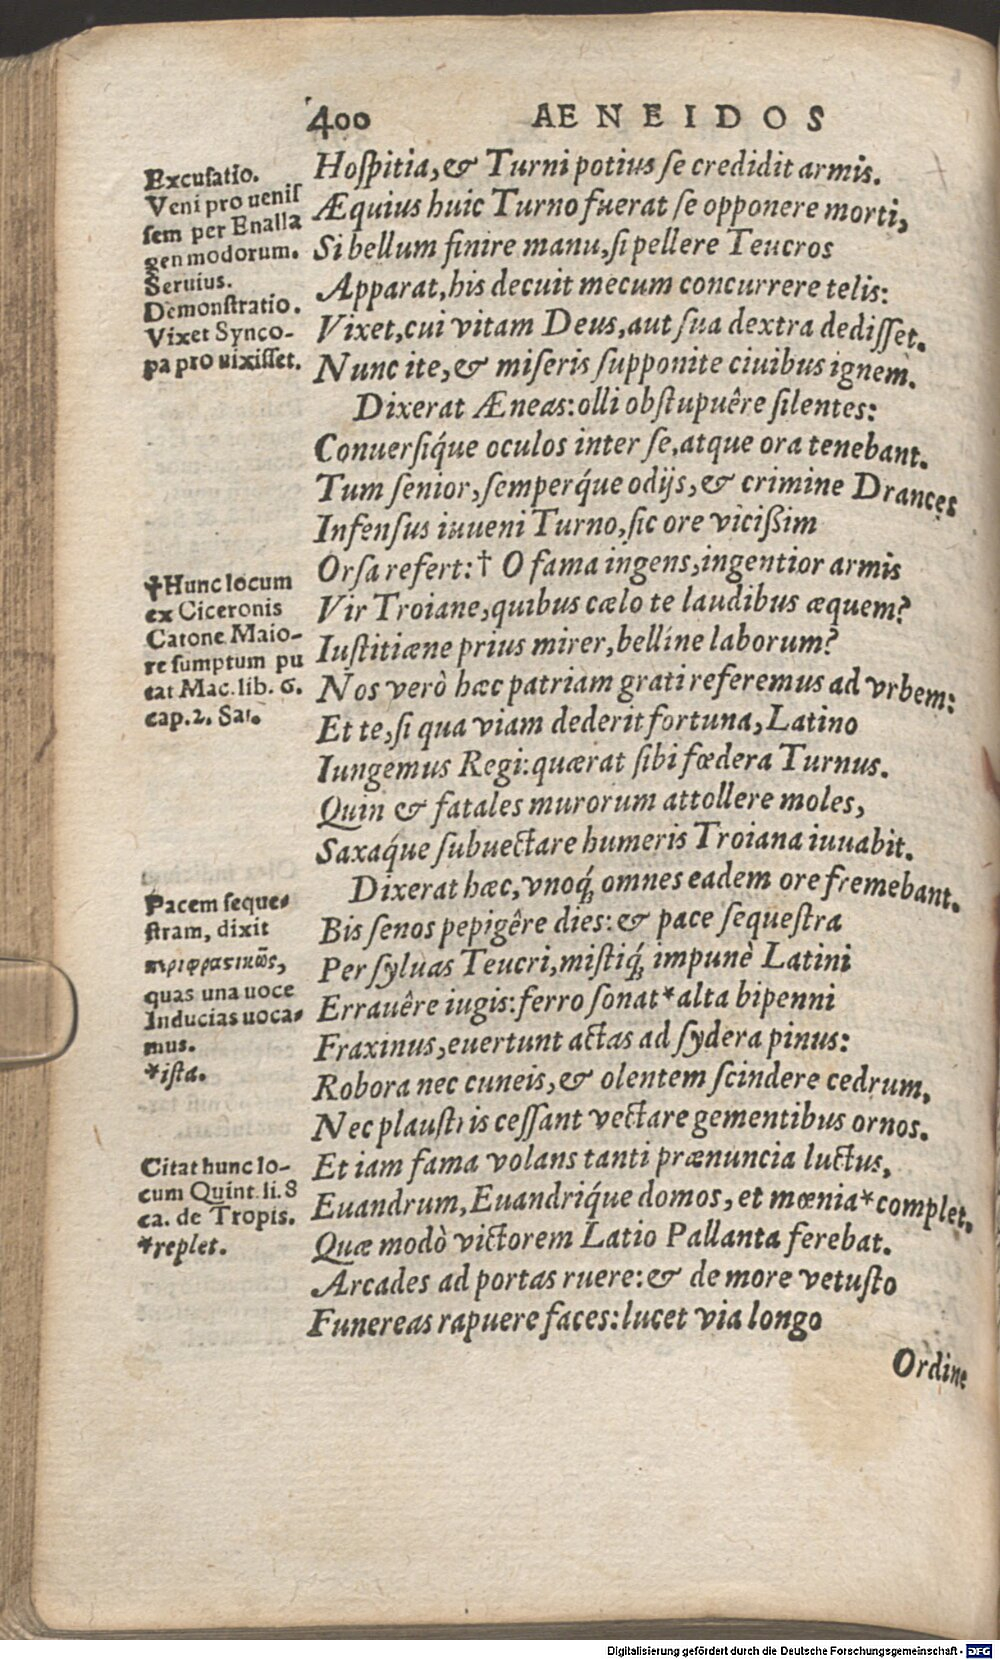 400 AENEIDOS
Excusatio.
Veni pro uenis
sem per Enalla
gen modorum.
Seruius.
Demonstratio.
Vixet Synco-
pa pro uixisset.
Hospitia, & Turni potius se credidit armis.
Æquius huic Turno fuerat se opponere morti,
Si bellum finire manu, si pellere Teucros
Apparat, his decuit mecum concurrere telis:
Vixet, cui vitam Deus, aut sua dextra dedisset.
Nunc ite, & miseris supponite ciuibus ignem.
Dixerat Æneas: olli obstupuêre silentes:
Conuersiq́ue oculos inter se, atque ora tenebant.
Tum senior, semperq́ue odijs, & crimine Drances
Infensus iuueni Turno, sic ore vicißim
Orsa refert: † O fama ingens, ingentior armis
Vir Troiane, quibus cælo te laudibus æquem?
Iustitiæne prius mirer, belline laborum?
Nos verò hæc patriam grati referemus ad vrbem:
Et te, si qua viam dederit fortuna, Latino
Iungemus Regi: quærat sibi fœdera Turnus.
Quin & fatales murorum attollere moles,
Saxaq́ue subuectare humeris Troiana iuuabit.
†Hunc locum
ex Ciceronis
Catone Maio-
re sumptum pu
tat Mac. lib. 6.
cap. 2. Sat.
Dixerat hæc, vnoq́; omnes eadem ore fremebant.
Bis senos pepigêre dies: & pace sequestra
Per syluas Teucri, mistiq́; impunè Latini
Errauêre iugis: ferro sonat * alta bipenni
Fraxinus, euertunt actas ad sydera pinus:
Robora nec cuneis, & olentem scindere cedrum,
Nec plaustris cessant vectare gementibus ornos.
Pacem seque-
stram, dixit
περιφραστικῶς,
quas una uoce
Inducias uoca-
mus.
*ista.
Et iam fama volans tanti prænuncia luctus,
Euandrum, Euandriq́ue domos, et mœnia * complet.
Quæ modò victorem Latio Pallanta ferebat.
Arcades ad portas ruere: & de more vetusto
Funereas rapuere faces: lucet via longo
Citat hunc lo-
cum Quint. li. 8
ca. de Tropis.
*replet.
Ordine
Digitalisierung gefördert durch die Deutsche Forschungsgemeinschaft - DFG